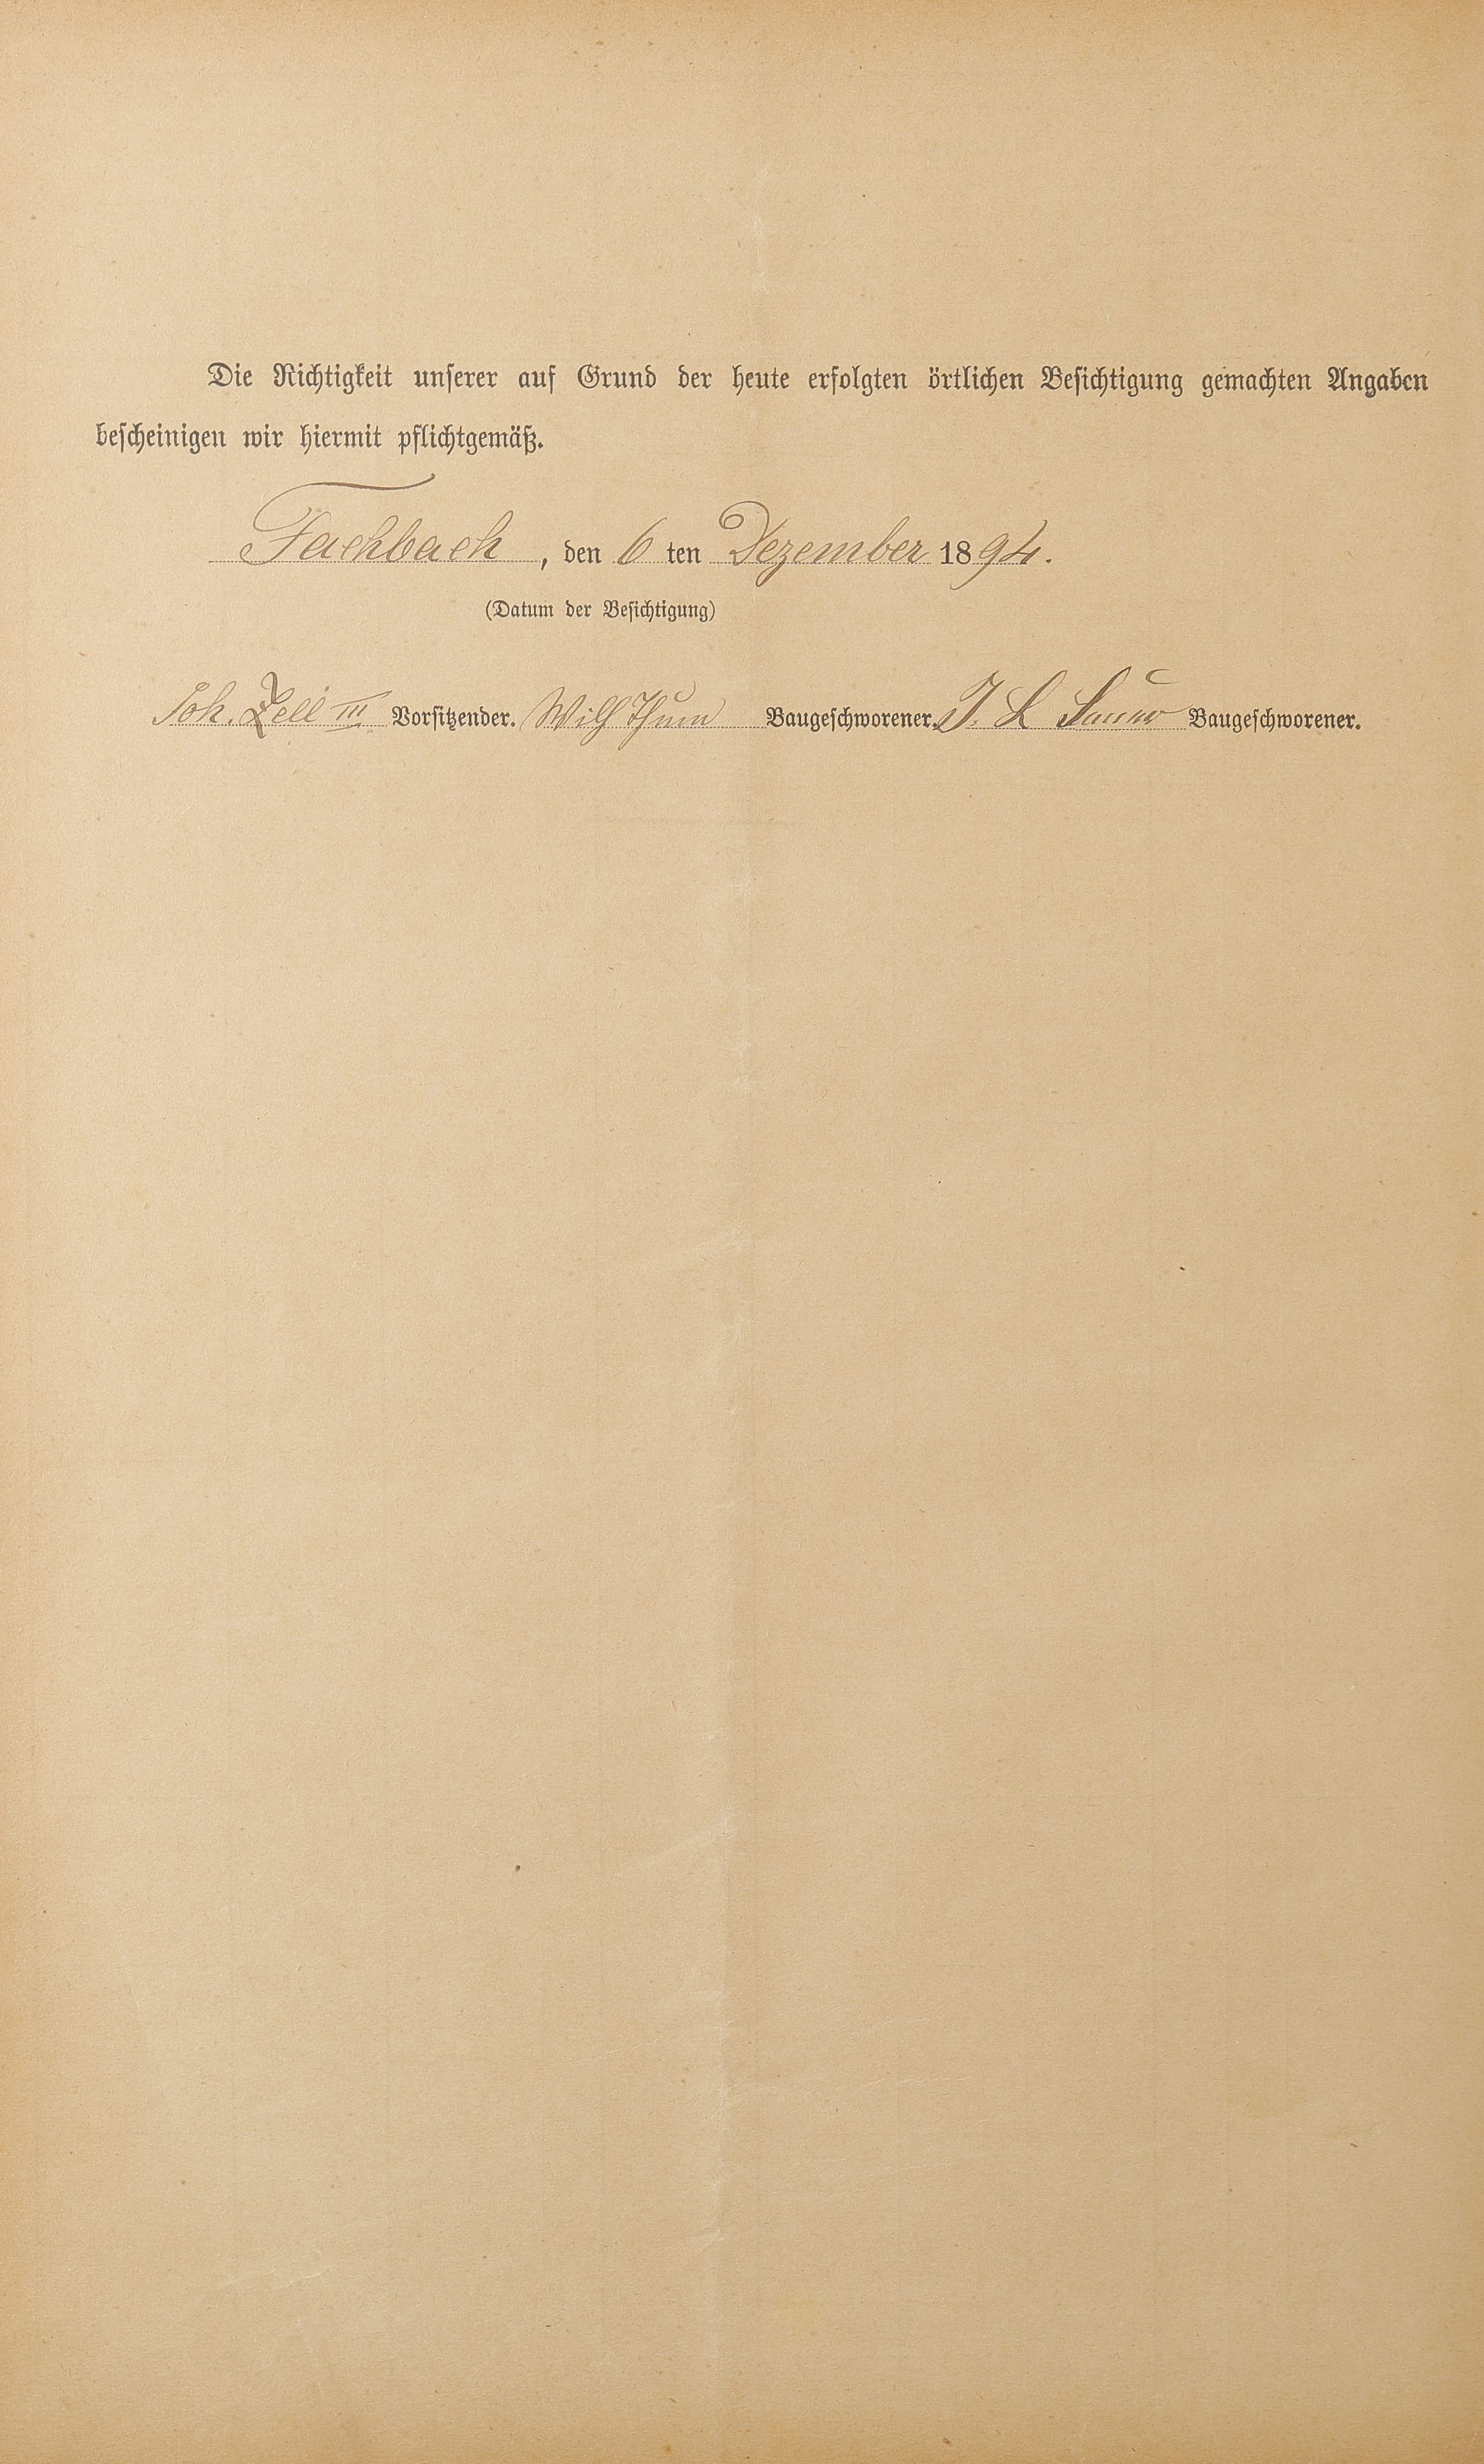 Die Richtigkeit unserer auf Grund der heute erfolgten örtlichen Besichtigung gemachten Angaben
bescheinigen wir hiermit pflichtgemäß.
Fachbach, den 6 ten Dezember 1894.
(Datum der Besichtigung)
Joh. Zell III Vorsitzender. Wilh Thum Baugeschworener. J. L Baugeschworener.